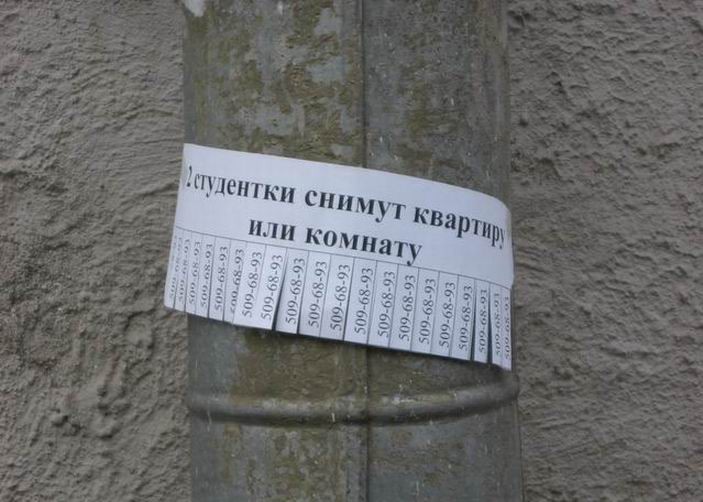 2 студентки снимут квартиру
или комнату
509-68-93
509-68-93
509-68-93
509-68-93
509-68-93
509-68-93
509-68-93
509-68-93
509-68-93
509-68-93
509-68-93
509-68-93
509-68-93
509-68-93
509-68-93
509-68-93
509-68-93
509-68-93
509-68-93
509-68-93